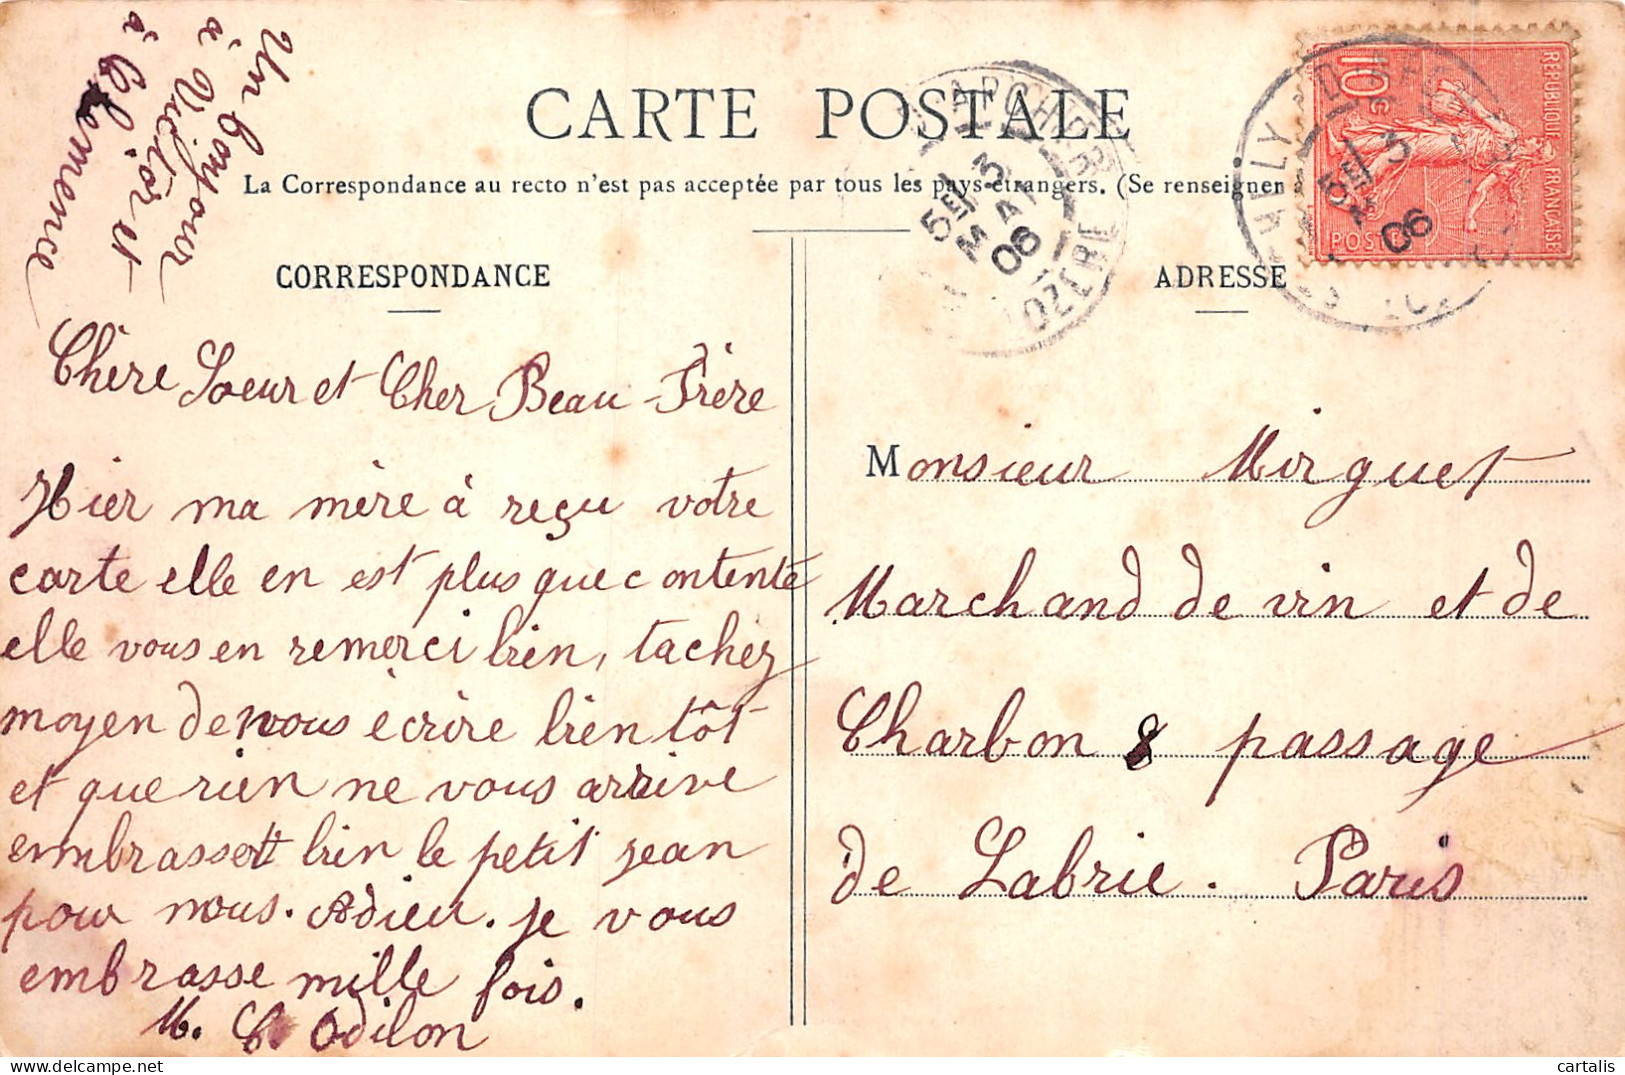 Un bonjour
à Victor et
à Clémence
CARTE POSTALE
La Correspondance au recto n'est pas acceptée par tous les pays étrangers. (Se renseigner
CORRESPONDANCE
Chère Soeur et Cher Beau-Frère
Hier ma mère à reçu votre
carte elle en est plus que contente
elle vous en remerci bien, tachez
moyen de nous écrire bientôt
et que rien ne vous arrive
embrasser bien le petit jean
pour nous. Adieu. je vous
embrasse mille fois.
M. C. Odilon
ADRESSE
Monsieur Mirguet
Marchand de vin et de
Charbon 8 passage
de Labrie. Paris
REPUBLIQUE FRANÇAISE
10c
POSTES
5E 3
MAI
06
LOZERE
5E 3
06
cartalis